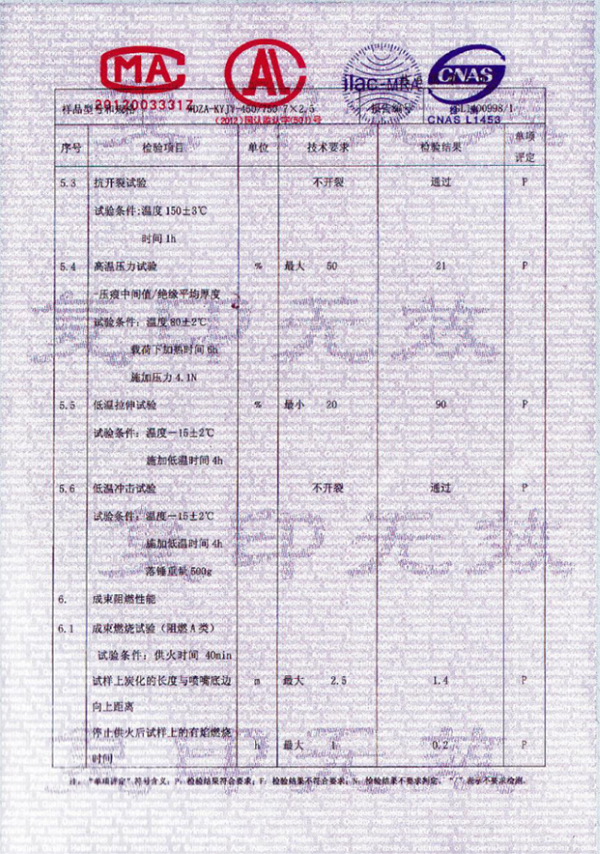 MA
2912003331Z
AL
(2012)国认监认字(591)号
ilac-MRA
CNAS
CNAS L1453
样品型号和规格 WDZA-KYJY-450/750 7×2.5 报告编号
序号 检验项目 单位 技术要求 检验结果 单项评定
5.3 抗开裂试验 不开裂 通过 P
试验条件:温度150±3℃
时间1h
5.4 高温压力试验 % 最大 50 21 P
压痕中间值/绝缘平均厚度
试验条件:温度80±2℃
载荷下加热时间6h
施加压力4.1N
5.5 低温拉伸试验 % 最小 20 90 P
试验条件:温度-15±2℃
施加低温时间4h
5.6 低温冲击试验 不开裂 通过 P
试验条件:温度-15±2℃
施加低温时间4h
落锤重量500g
6. 成束阻燃性能
6.1 成束燃烧试验(阻燃A类)
试验条件:供火时间 40min
试样上炭化的长度与喷嘴底边 m 最大 2.5 1.4 P
向上距离
停止供火后试样上的有焰燃烧 h 最大 1 0.2 P
时间
注:"单项评定"符号含义:P:检验结果符合要求;F:检验结果不符合要求;N:检验结果不要求判定。"/"表示不要求检测。
复印无效
复印无效
复印无效